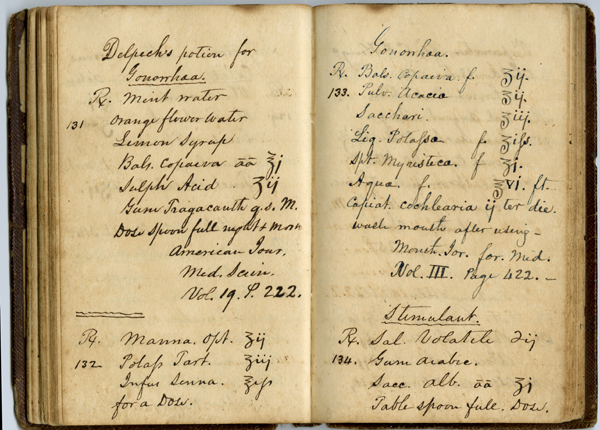 Delpech's potion for
Gonorrhaa.
℞. Mint water
131 orange flower water
Limon Syrup
Bals. Copaiva āā ℥j
Sulph Acid ʒij
Gum Tragacanth q.s. M.
Dose spoon full night & morn
American Jour.
Med. Scien.
Vol. 19. P. 222.
℞. Manna. opt. ℥ij
132 Potass Tart. ʒiij
Infus Senna. ℥iss
for a Dose.
Gonorrhaa.
℞. Bals. Copaiva. f. ℥ij.
133. Pulv. Acacia ℥ij.
Sacchari. ℥iij.
Liq. Potassa f. ʒiss.
Spt. Myristica. f ℥j.
Aqua. f. ℥vi. ft.
Capiat cochlearia ij ter die.
wash mouth after using –
Month. Jor. for. Med.
Vol. III. Page 422. –
Stimulant.
℞ Sal. Volatile ℈ij
134. Gum arabic.
Sacc. alb. āā ʒj
Table spoon full. Dose.